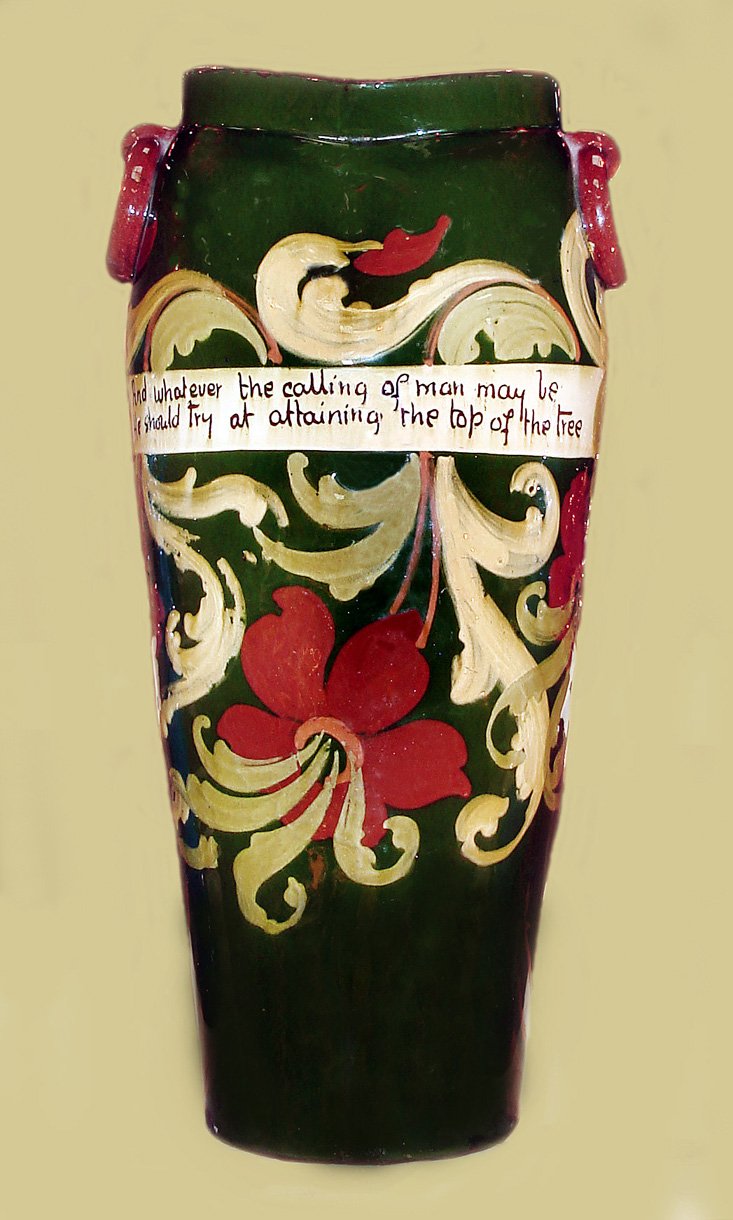 And whatever the calling of man may be
should try at attaining the top of the tree